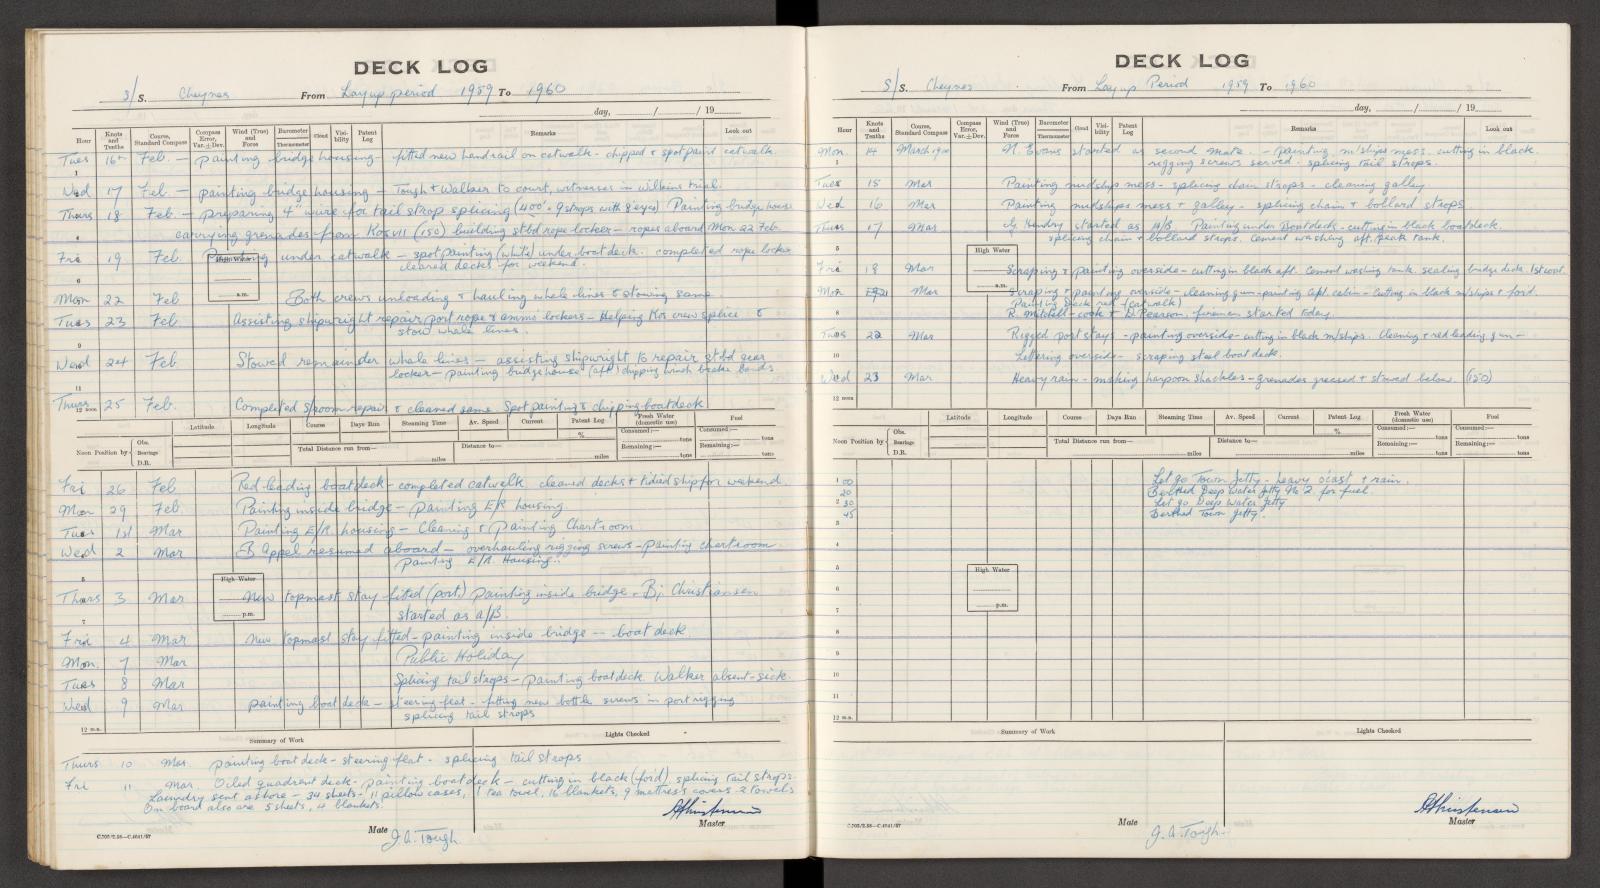 DECK LOG
S/S. Cheynes From Lay up period 1959 To 1960
day, / / 19
Hour Knots and Tenths Course, Standard Compass Compass Error, Var.±Dev. Wind (True) and Force Barometer Thermometer Cloud Visibility Patent Log Remarks Look out
Tues 16th Feb. — painting bridge housing - fitted new handrail on catwalk - chipped & spot paint catwalk.
1
Wed 17 Feb. — painting bridge housing — Tough & Walker to court, witnesses in Wilkins trial.
Thurs 18 Feb. — preparing 4" wire for tail strop splicing (400' - 9 strops with 8' eyes) Painting bridge house
4 carrying grenades from Kos VII (150) building stbd rope locker - ropes aboard Mon 22 Feb.
Fri 19 Feb. Painting under catwalk — spot painting (white) under boat deck. completed rope locker
High Water
cleared decks for weekend.
6
a.m.
Mon 22 Feb Both crews unloading & hauling whale lines & stowing same.
Tues 23 Feb Assisting shipwright repair port rope & ammo lockers — Helping Kos crew splice &
stow whale lines.
9
Wed 24 Feb Stowed remainder whale lines — assisting shipwright to repair stbd gear
locker — painting bridgehouse (aft) chipping winch brake bands
11
Thurs 25 Feb. Completed s/room repair & cleaned same. Spot painting & chipping boatdeck
12 noon
Latitude Longitude Course Days Run Steaming Time Av. Speed Current Patent Log Fresh Water (domestic use) Fuel
% Consumed:— tons Consumed:— tons
Noon Position by Obs. Bearings D.R. Total Distance run from— miles Distance to— miles Remaining:— tons Remaining:— tons
Fri 26 Feb Red-leading boatdeck - completed catwalk cleaned decks & tidied ship for weekend.
Mon 29 Feb. Painting inside bridge — painting E/R housing
Tues 1st Mar Painting E/R. housing — Cleaning & painting Chartroom.
Wed 2 Mar B Appel resumed aboard — overhauling rigging screws - painting chartroom
Painting E/R. Housing.
5
High Water
Thurs 3 Mar New topmast stay fitted (port) painting inside bridge. Bj Christiansen
p.m.
started as a/B.
7
Fri 4 Mar New topmast stay fitted - painting inside bridge — boat deck.
Mon. 7 Mar Public Holiday
Tues 8 Mar Splicing tail strops — painting boat deck. Walker absent - sick.
Wed 9 Mar painting boat deck — steering flat - fitting new bottle screws in port rigging
splicing tail strops
12 m.n.
Summary of Work Lights Checked
Thurs 10 Mar. painting boat deck - steering flat - splicing tail strops
Fri 11 Mar. Oiled quadrant deck - painting boat deck — cutting in black (for'd). splicing tail strops.
Laundry sent ashore — 34 sheets - 11 pillow cases, 1 tea towel, 16 blankets, 9 mattress covers 2 towels
On board also are 5 sheets, 4 blankets.
Master
Mate J. A. Tough.
C.705/2.58—C.4041/57
DECK LOG
S/S. Cheynes From Lay up Period 1959 To 1960
day, / / 19
Hour Knots and Tenths Course, Standard Compass Compass Error, Var.±Dev. Wind (True) and Force Barometer Thermometer Cloud Visibility Patent Log Remarks Look out
Mon. 14 March 1960 N. Evans started as second mate. - painting m/ships mess. cutting in black.
1 rigging screws served. splicing tail strops.
Tues 15 Mar Painting midships mess - splicing chain strops - cleaning galley
Wed 16 Mar Painting midships mess & galley - splicing chain & bollard strops.
Thurs 17 Mar G. Hendry started as A/B. Painting under boatdeck - cutting in black boatdeck.
splicing chain & bollard strops. Cement washing aft. peak tank.
5
High Water
Fri 18 Mar Scraping & painting overside - cutting in black aft. Cement washing tank. sealing bridge deck. 1st coat.
a.m.
Mon 21 Mar Scraping & painting overside - cleaning gun - painting Capt. cabin - Cutting in black m/ships & ford.
Painting Deck rail (catwalk)
8 R. Mitchell - cook & D. Pearson, fireman started today.
Tues 22 Mar Rigged port stays - painting overside - cutting in black m/ships. Cleaning & red leading gun —
10 Lettering overside - scraping steel boat deck.
Wed 23 Mar Heavy rain - making harpoon shackles - grenades greased & stowed below. (150)
12 noon
Latitude Longitude Course Days Run Steaming Time Av. Speed Current Patent Log Fresh Water (domestic use) Fuel
% Consumed:— tons Consumed:— tons
Noon Position by Obs. Bearings D.R. Total Distance run from— miles Distance to— miles Remaining:— tons Remaining:— tons
1 00 Let go Town Jetty - heavy o'cast & rain.
20 Berthed Deep Water Jetty No 2 for fuel.
2 30 Let go Deep Water Jetty
45 Berthed Town Jetty.
3
4
5
High Water
6
p.m.
7
8
9
10
11
12 m.n.
Summary of Work Lights Checked
Master
Mate J. A. Tough.
C.705/2.58—C.4041/57